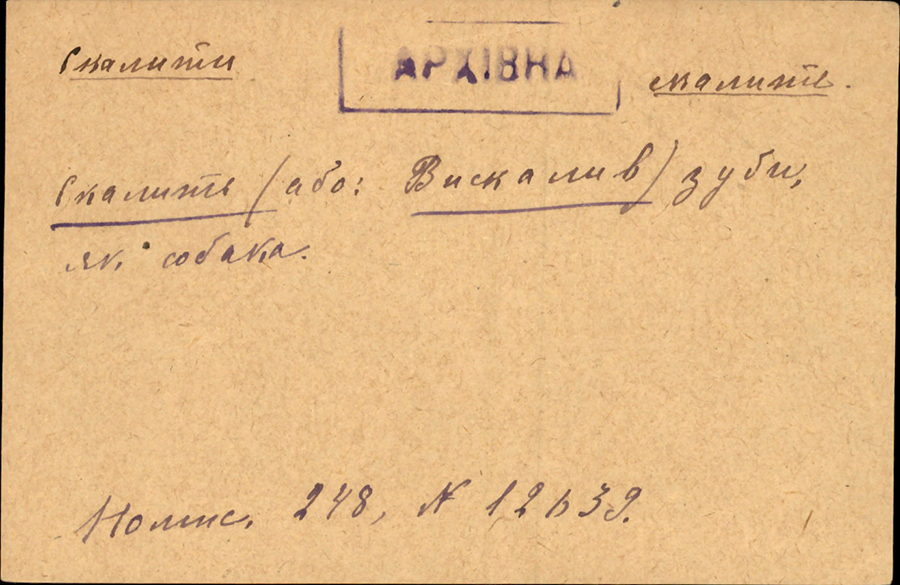 Скалити
АРХІВНА
скалить.
Скалить (або: Вискалив) зуби,
як собака.
Номис. 248, N 12639.